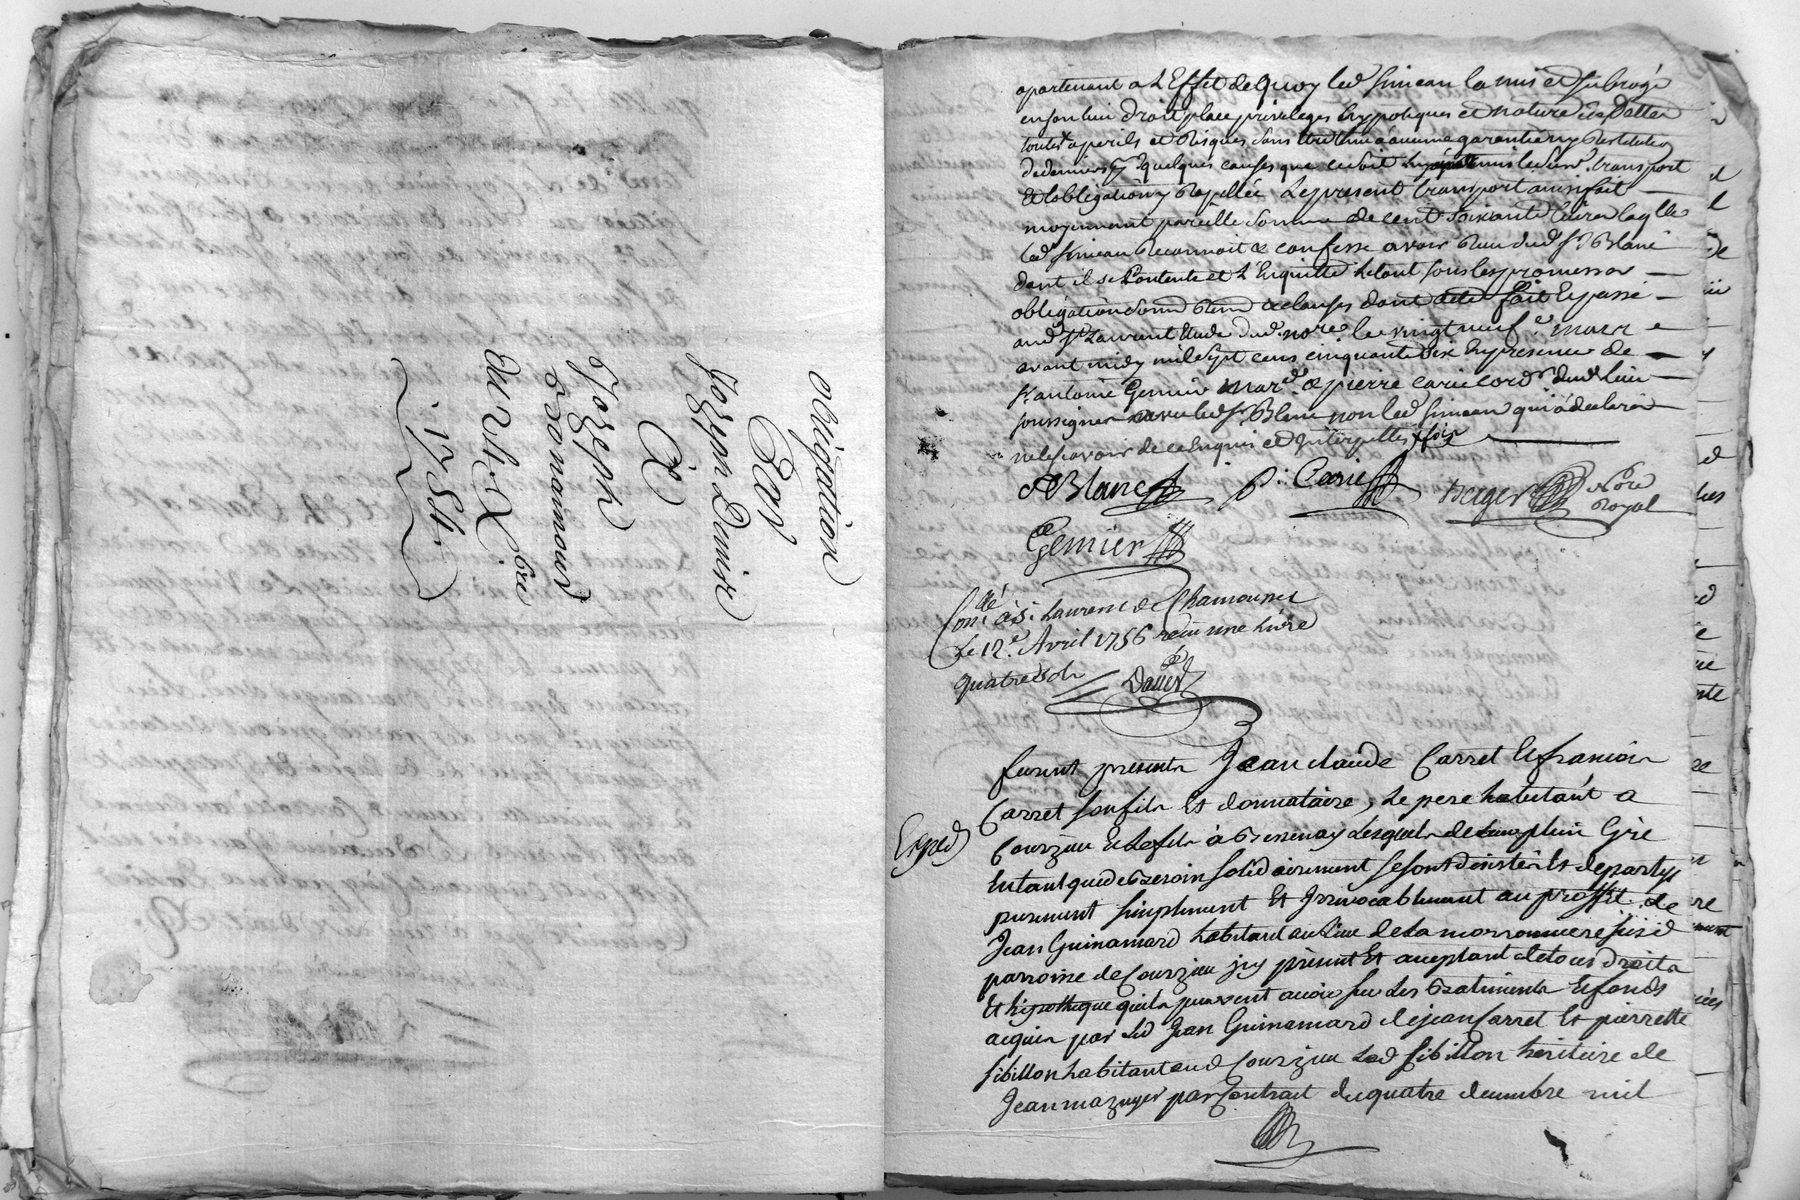 obligation
Par
Jozeph
A
Jozeph
du xbre
1754
apartenant a L'Effet de quoy led Simean la mis et subrogé
en son lieu droit place privileges hypoteques et nature de dette
perils et Risques sans garantie ny Restitution
de deniers quelques causes que ce soit transport
et obligation Le present transport ainsi fait
moyennant pareille somme de cent soixante livres laqlle
led Simean Reconnoit & confesse avoir Reçu dud Sr Blanc
dont il se Contente et L'Enquitte le tout sous les promesses
obligations Renon & clauses dont acte fait Et passé
aud St Laurent Etude dud nore le vingt neuf mars
avant midy mil sept cens cinquante six En presence de
Sr antoine Gemier mard & pierre carie cordr dud lieu
soussignes avec led Sr Blanc non led Simean qui a declaré
ne le sçavoir de ce Enquis et Interpellés
Blanc P: Carie Berger Nore
Royal
Gemier
Conllé à St Laurent de Chamousset
Le 12e Avril 1756 reçu une livre
quatre sols
furent presents Jean claude Carret Et francois
Carret son fils Et donnataire, Le pere habitant a
Expéd
Courzieu Et Le fils à Bessenay Lesquels de Leur plein Gré
En tant que de Besoin solidairement se sont desistés Et departys
purement simplement Et Irrevocablement au proffit de
Jean Guinamard habitant au Lieu de La morronniere susd
parroisse de Courzieu jcy présent Et aceptant de tous droits
Et hipotheque quils peuvent avoir sur Les Batiments Et fonds
acquis par Led Jean Guinamard de jean Carret Et pierrette
Sibillon habitant aud Courzieu Lad Sibillon heritiere de
Jean mazuyer par Contrat du quatre decembre mil